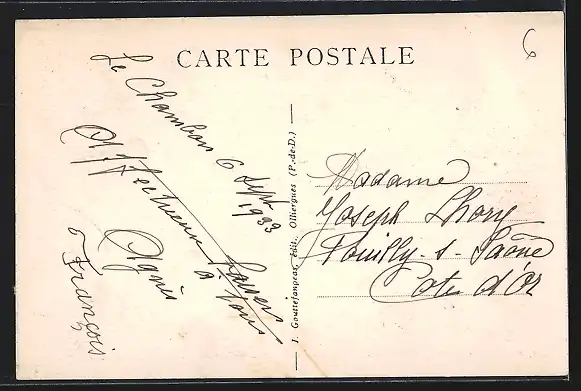 CARTE POSTALE
6
Le Chambon 6 Sept
1933
Affectueux baisers
à tous
Agnès
François
J. Gouttefangeas, Édit., Olliergues (P.-de-D.)
Madame
Joseph Lhory
Pouilly-s-Saône
Côte d'Or